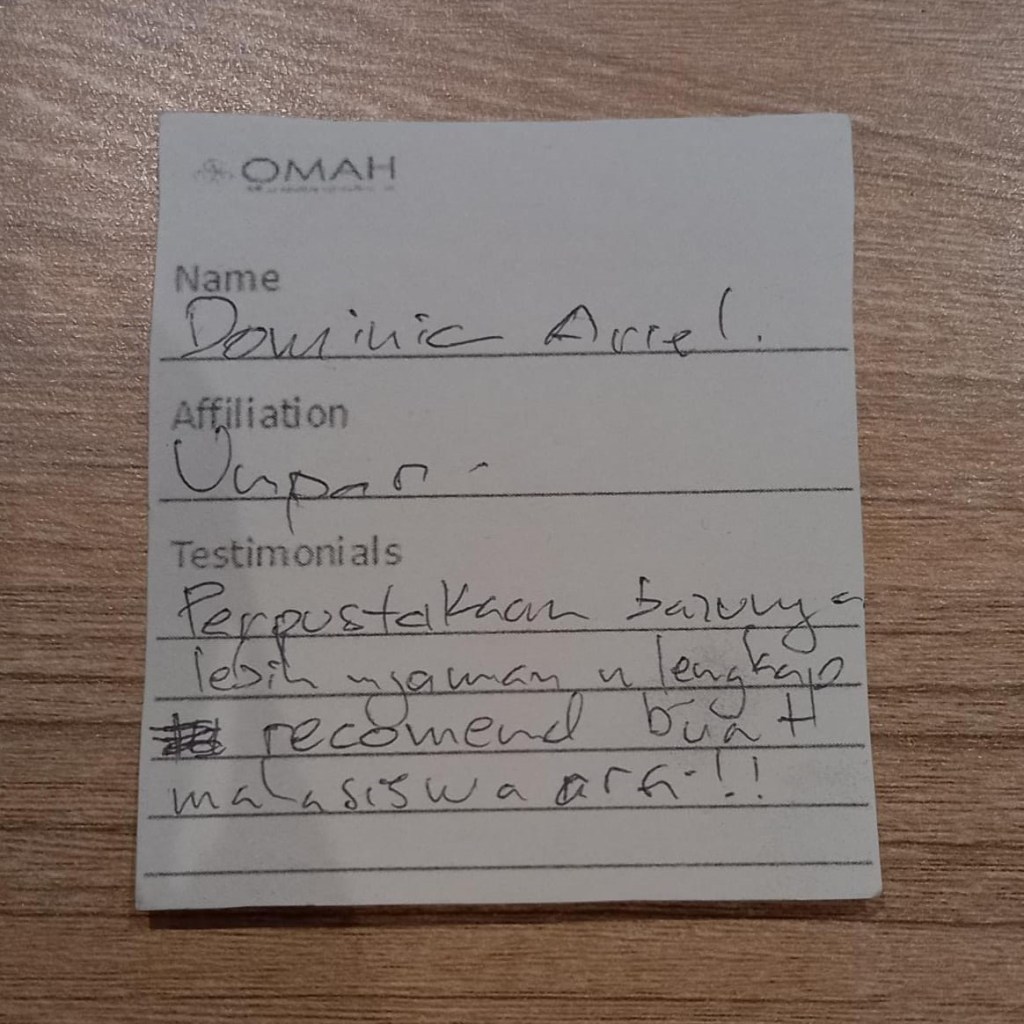 OMAH
Name
Dominic Arrel.
Affiliation
Unpar -
Testimonials
Perpustakaan barunya
lebih nyaman n lengkap
recomend buat
mahasiswa ars !!